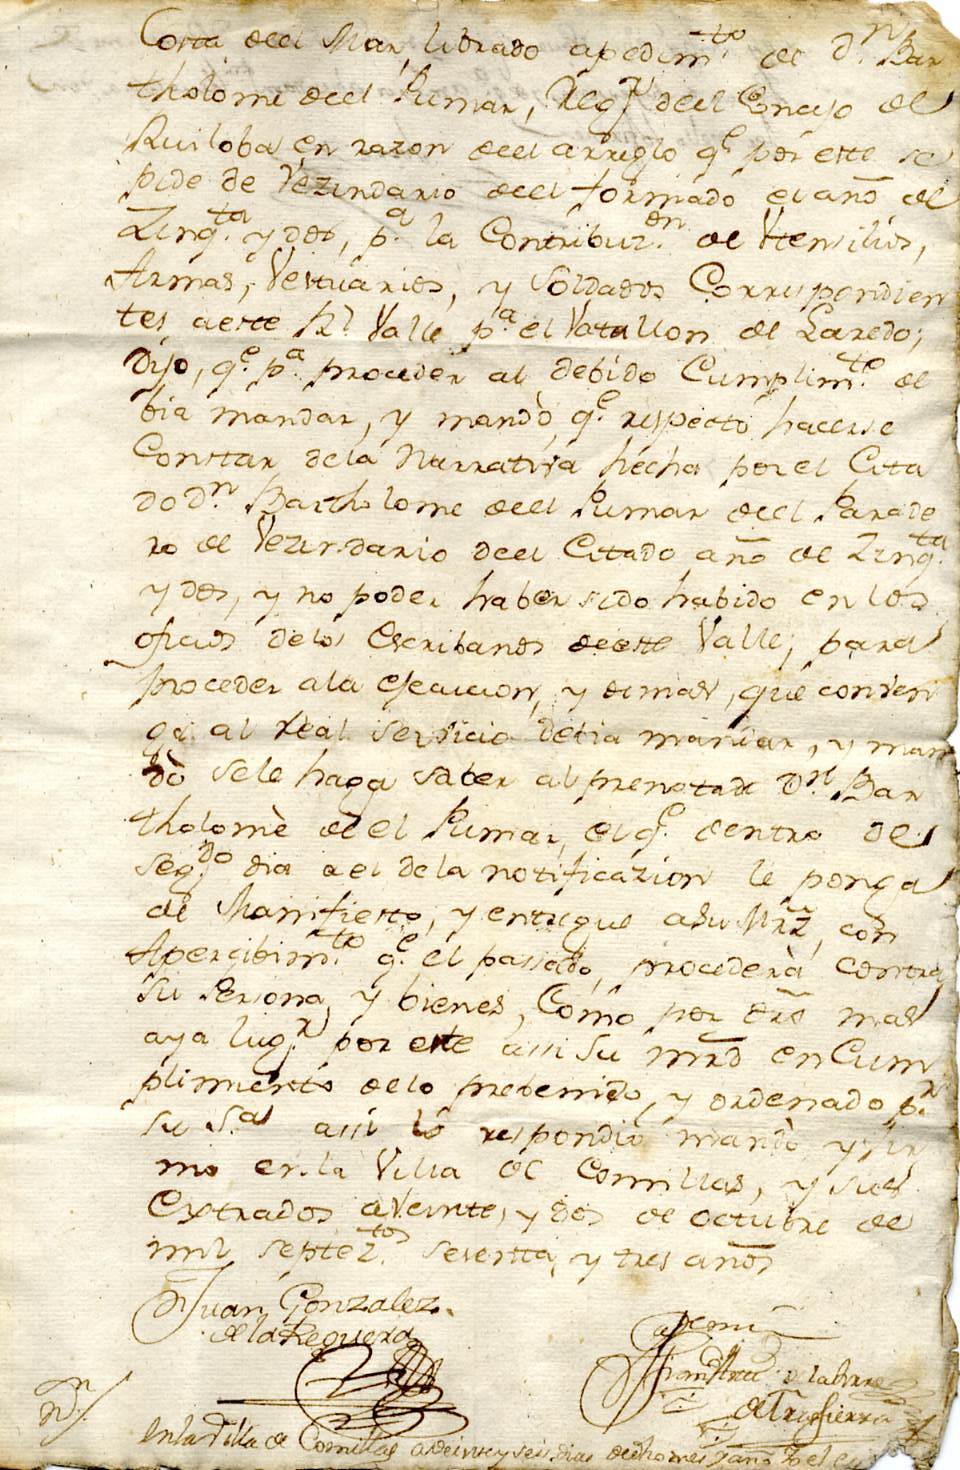 Costa deel Mar, librado apedimto de Dn Bar
tholome deel Pumar, Regr deel Concejo de
Ruiloba en razon deel arreglo qe por este se
pide de Vezindario deel formado el año de
Zinqta y dos, pa la Contribuzon de Utensilios,
Armas, Vestuarios, y Soldados Correspondien
tes aeste Rl Valle pa el Vatallon de Laredo;
Dijo, qe pa proceder al debido Cumplimto de
bia mandar, y mandò qe respecto hacerse
Constar dela Narrativa hecha por el Cita
do Dn Bartholome deel Pumar deel Parade
ro de Vezindario deel Citado año de Zinqta
y dos, y no poder haber sido habido en los
oficios delos Escribanos deeste Valle, para
proceder ala ejecucion, y demas, que conven
ga al Real Servicio debia mandar, y man
dò sele haga saber al prenotado Dn Bar
tholomè de el Pumar, el qe dentro de
segdo dia ael dela notificazion le ponga
de Manifiesto, y entregue asu Mrd, con
Apercibimto qe el passado, procederà contra
su Persona, y bienes, Como por dro mas
aya lugr por este assi su mrd en Cum
plimiento delo prebenido, y ordenado pr
su Sa assi lo respondio mandò y fir
mo en la Villa de Comillas, y sus
Extrados aVeinte, y dos de octubre de
mil Septeztos setenta, y tres años
Dn Juan Gonzalez
dela Reguera
Antemi
Franco de la Torre
de Trasierra
Nn
En la Villa de Comillas a veinte y seis dias de dho mes y año Yo el es